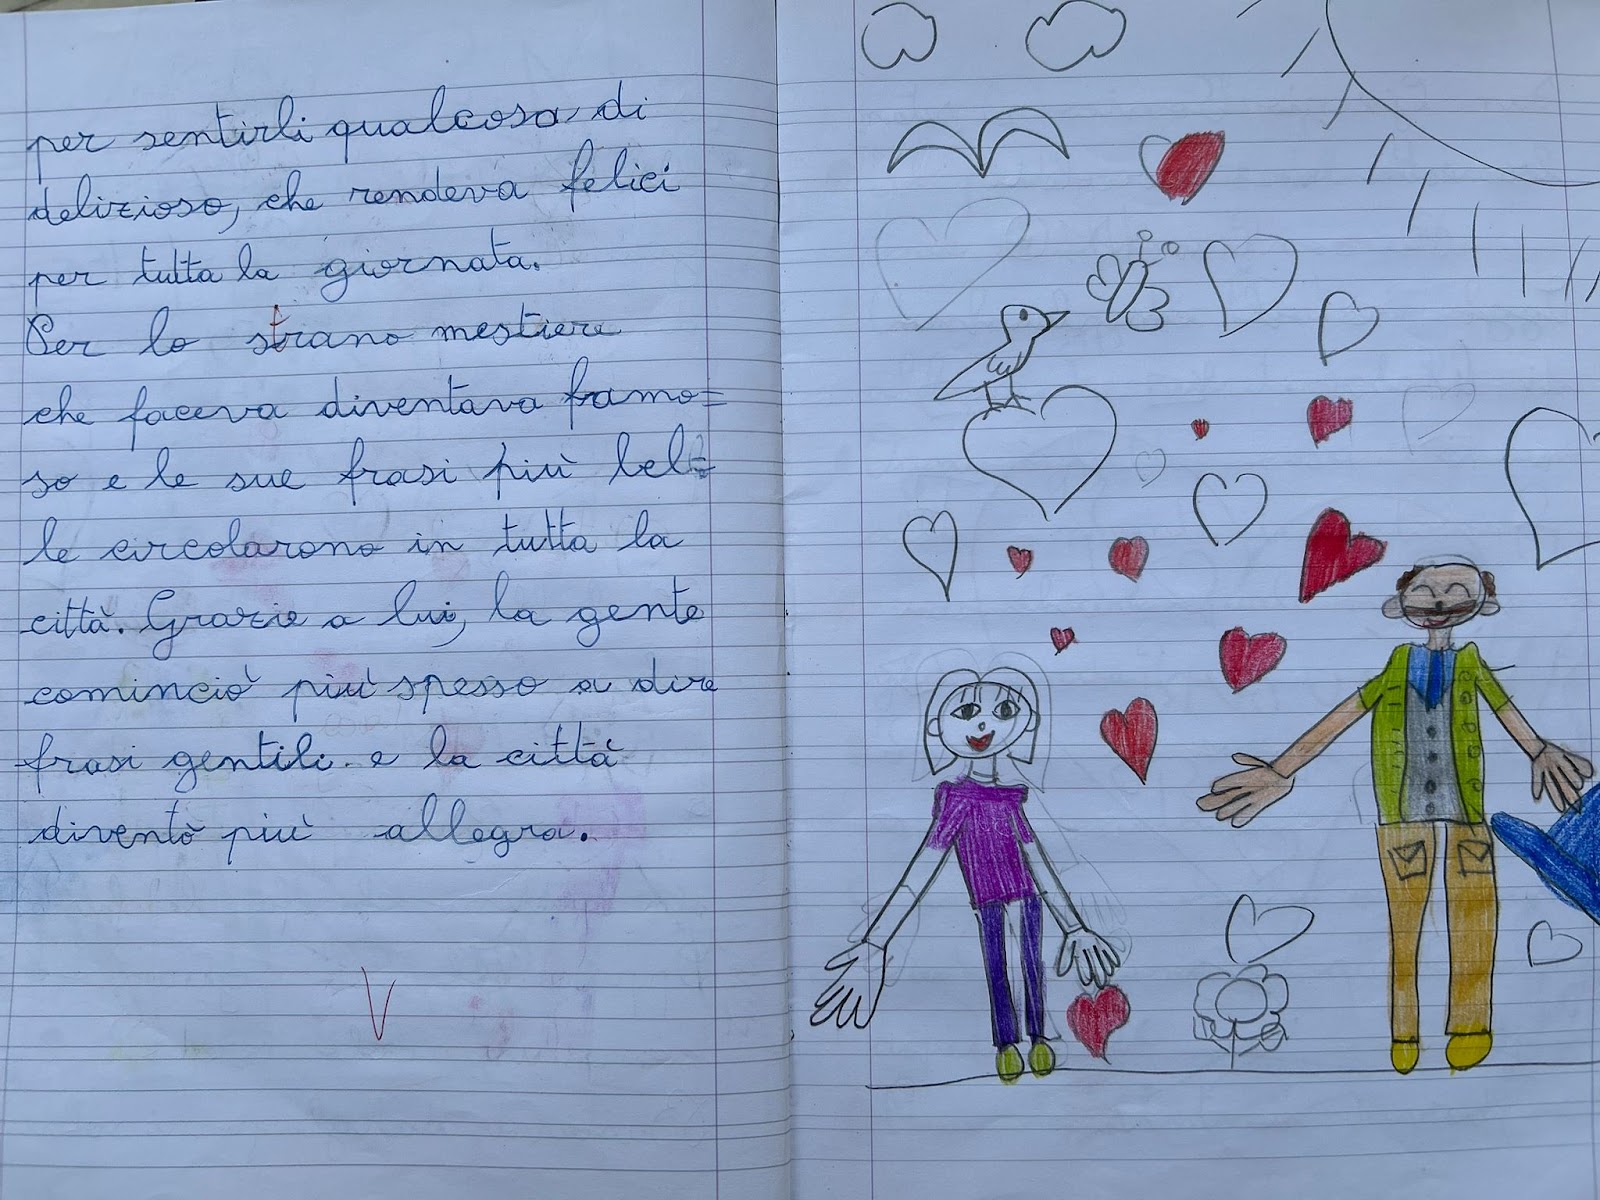 per sentirli qualcosa di
delizioso, che rendeva felici
per tutta la giornata.
Per lo strano mestiere
che faceva diventava framo=
so e le sue frasi più bel=
le circolarono in tutta la
città. Grazie a lui, la gente
cominciò più spesso a dire
frasi gentili. e la città
diventò più allegra.